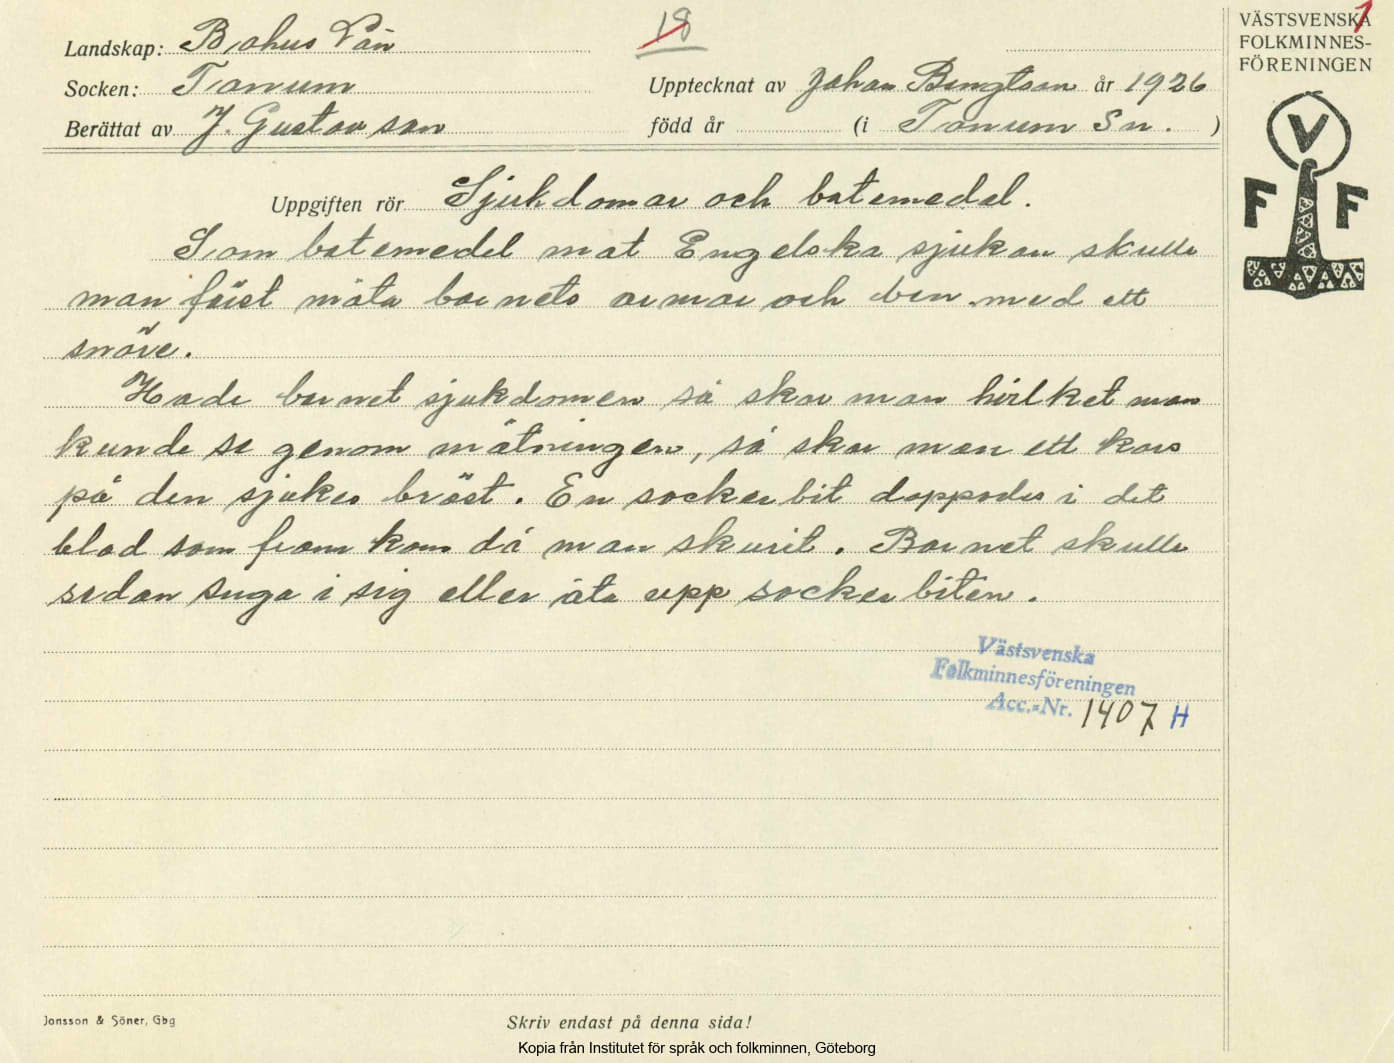 18
1
VÄSTSVENSKA
FOLKMINNES-
FÖRENINGEN
V
F F
Landskap: Bohus Län
Socken: Tanum
Upptecknat av Johan Bengtson år 1926
Berättat av J. Gustavson
född år (i Tanum Sn. )
Uppgiften rör Sjukdomar och botemedel.
Som botemedel mot Engelska sjukan skulle
man föist mäta barnets armar och ben med ett
snöre.
Hade barnet sjukdomen så skar man hvilket man
kunde se genom mätningen, så skar man ett kors
på den sjukes bröst. En sockerbit doppades i det
blod som fram kom då man skurit. Barnet skulle
sedan suga i sig eller äta upp sockerbiten.
Västsvenska
Folkminnesföreningen
Acc.-Nr. 1407 H
Jonsson & Söner, Gbg
Skriv endast på denna sida!
Kopia från Institutet för språk och folkminnen, Göteborg